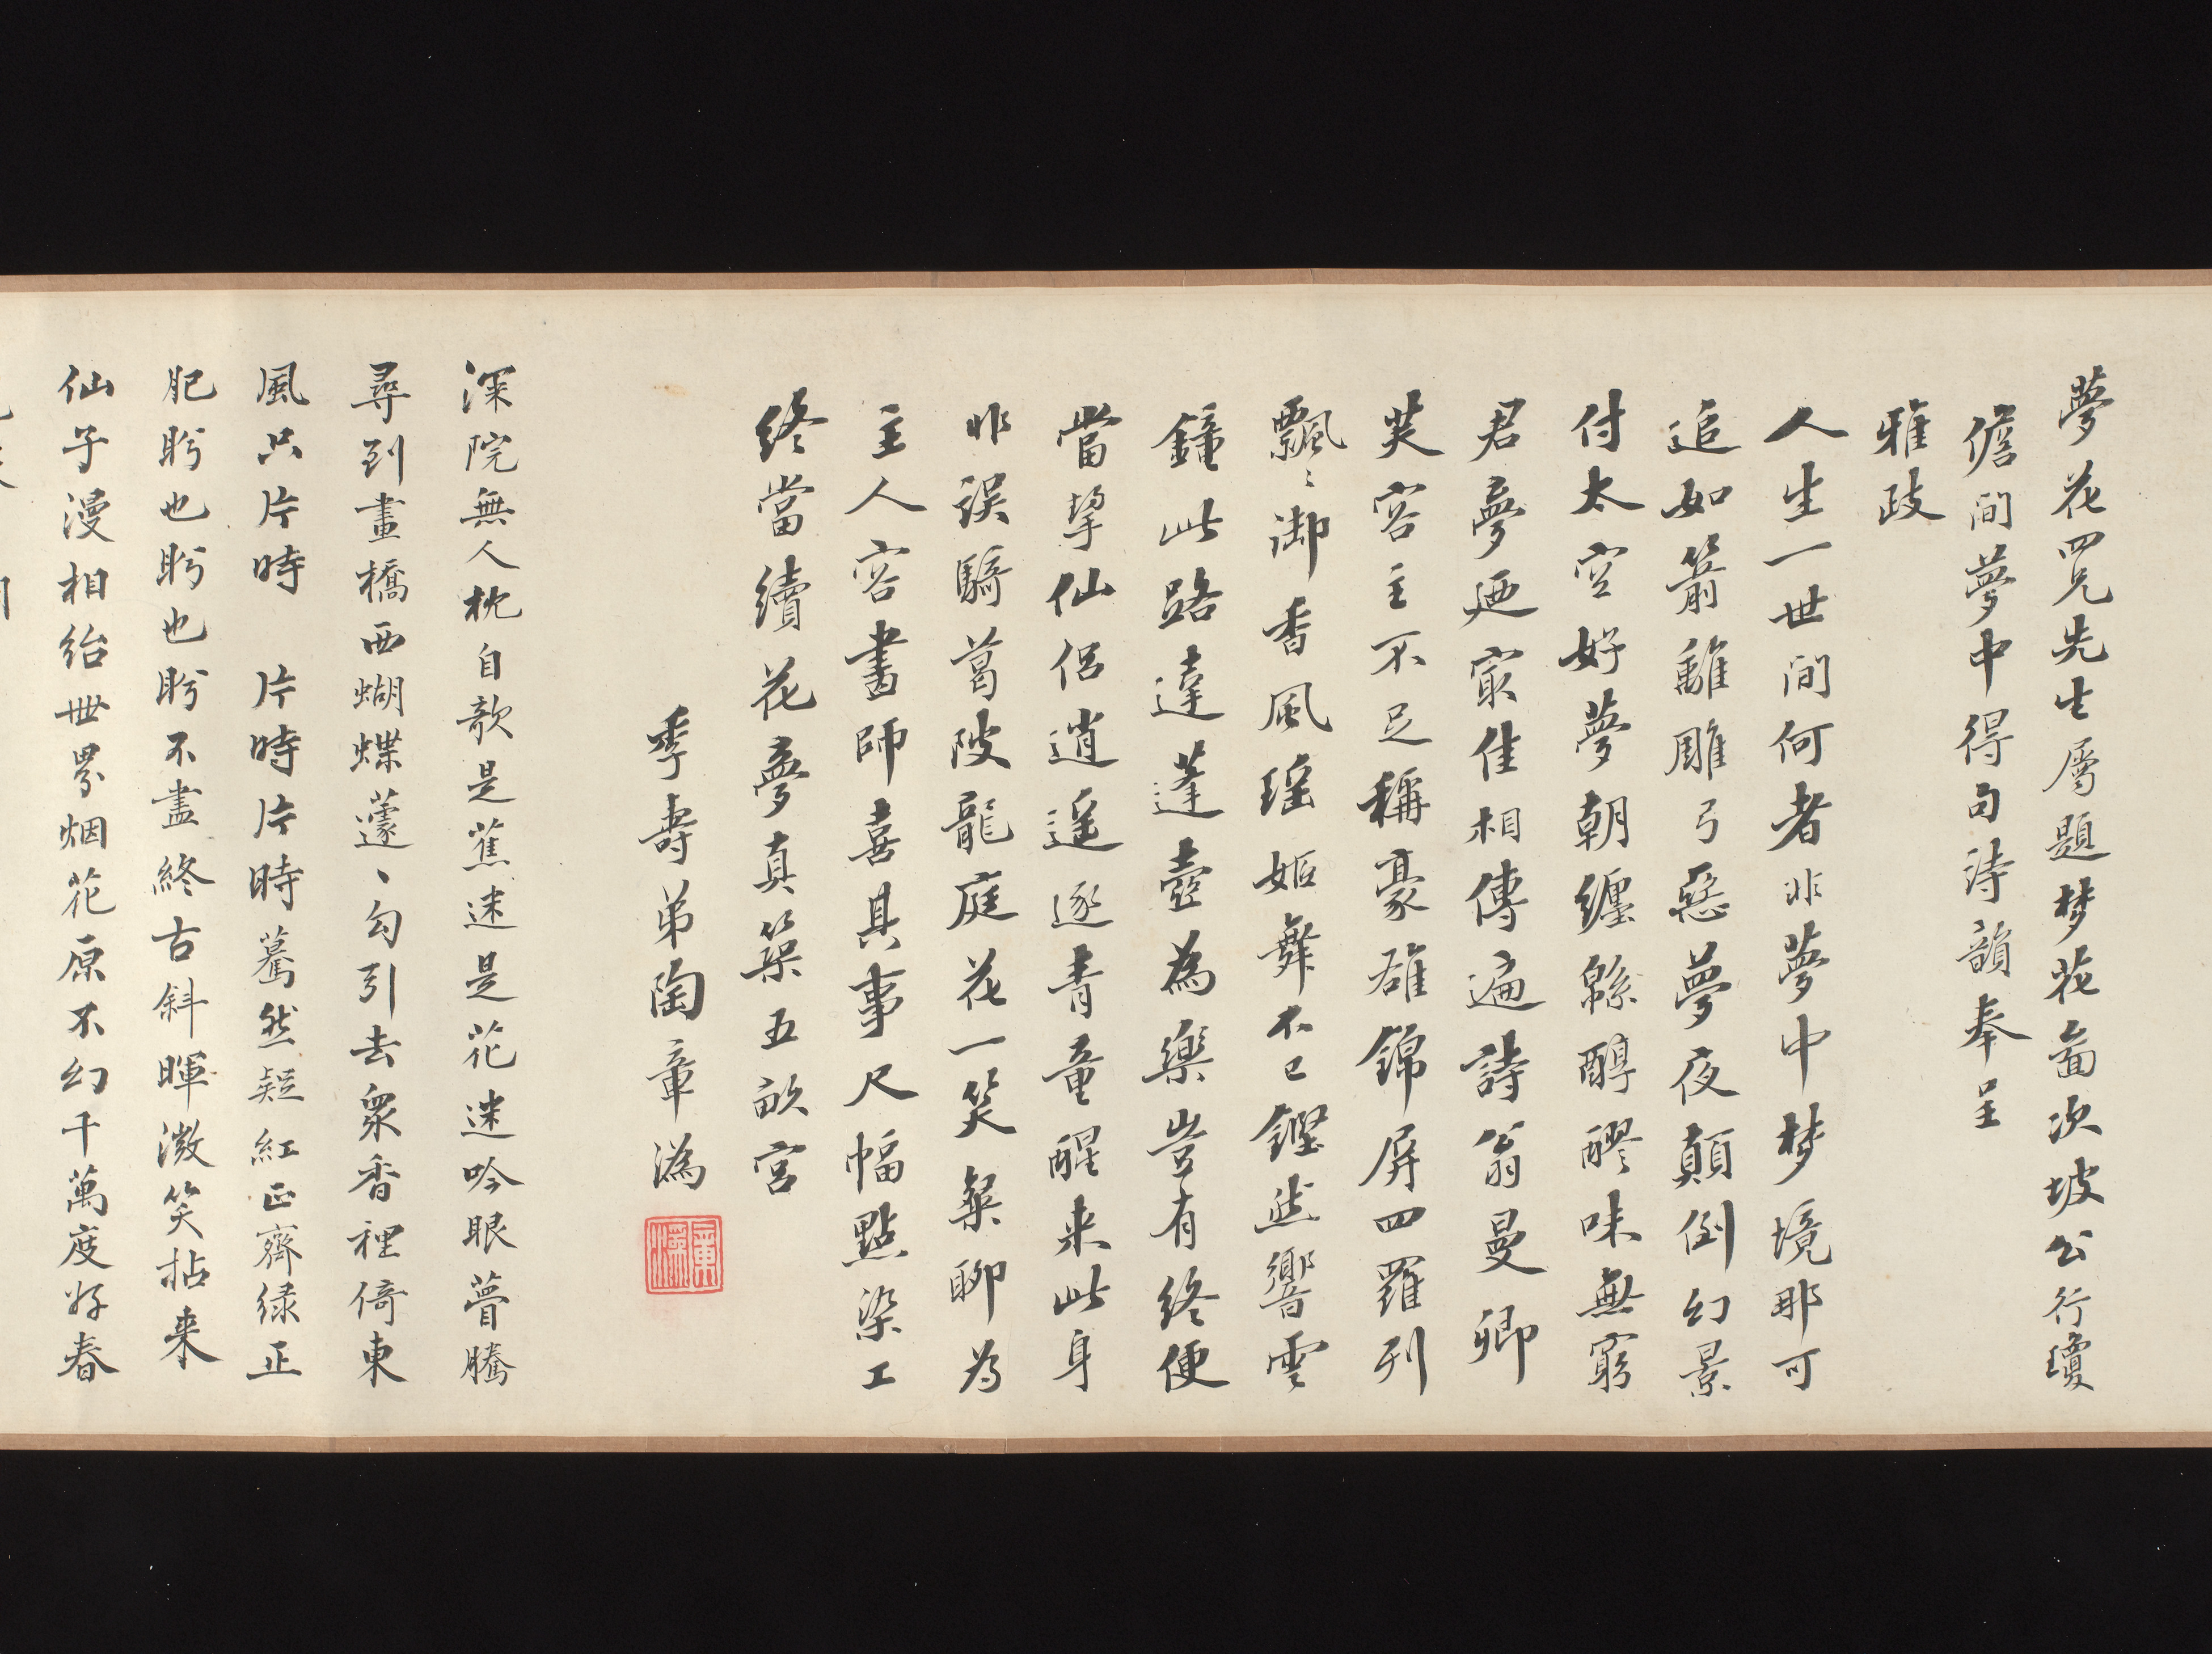 夢花四兄先生屬題梦花啚次坡公行瓊
儋間夢中得句詩韻奉呈
雅政
人生一世间何者非夢中梦境那可
追如箭離雕弓惡夢夜顛倒幻景
付太空好夢朝纏緜醇醪味無窮
君夢廼寂佳相傳遍詩翁曼卿
芙容主不足稱豪雄錦屏四羅列
飄〻御香風瑶姬舞不已鏗然響雲
鐘此路達蓬壺為樂豈有終便
當挈仙侣逍遥逐青童醒来此身
非误騎葛陂龍庭花一笑粲聊为
主人容畫師喜具事尺幅點染工
終當續花夢真築五畝宮
季壽弟陶章溈
深院無人枕自欹是蕉迷是花迷吟眼瞢騰
尋到畫橋西蝴蝶蘧〻勾引去衆香裡倚東
風只片時 片時片時驀然疑紅正齊緑正
肥盻也盻也盻不盡終古斜暉微笑拈来
仙子漫相紿世界烟花原不幻千萬度好春